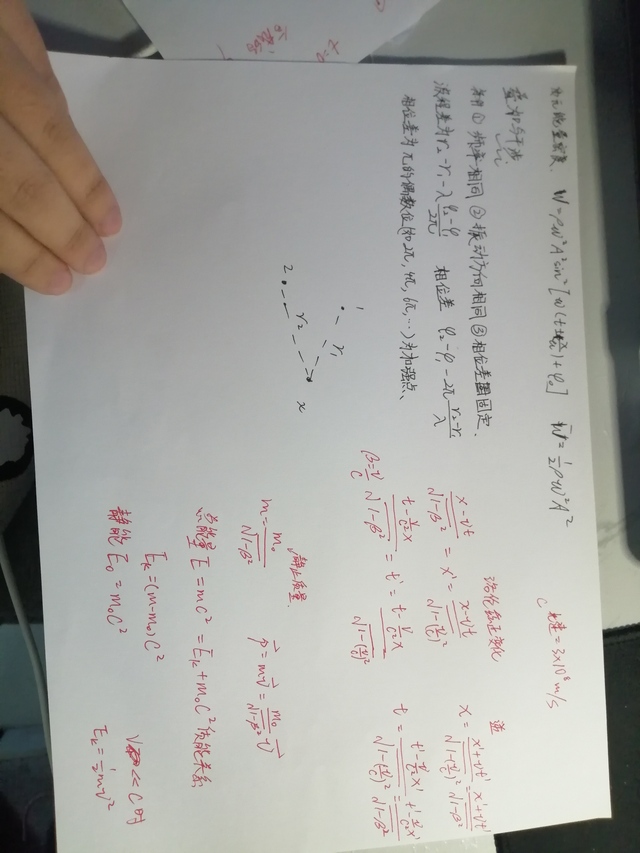 波元能量密度. W=ρω²A²sin²[ω(t-x/u)+φ₀] W̄=½ρω²A²
叠加与干涉
条件 ①频率相同 ②振动方向相同 ③相位差固定.
波程差为r₂-r₁-λ(φ₂-φ₁)/2π 相位差 φ₂-φ₁-2π(r₂-r₁)/λ
相位差为π的偶数倍(如2π, 4π, 6π, …)为加强点、
1
r₁
2
r₂
x
C光速=3×10⁸m/s
洛伦兹正变化
逆
(x-vt)/√(1-β²) = x' = (x-vt)/√(1-(v/c)²)
x = (x'+vt')/√(1-(v/c)²) = (x'+vt')/√(1-β²)
β=v/c
(t-(v/c²)x)/√(1-β²) = t' = (t-(v/c²)x)/√(1-(v/c)²)
静止质量
m = m₀/√(1-β²)
p⃗ = mv⃗ = (m₀/√(1-β²)) v⃗
总能量E=mC²=Eₖ+m₀C² 质能关系
Eₖ=(m-m₀)C²
静能E₀=m₀C²
V<<C时
Eₖ=½mv²